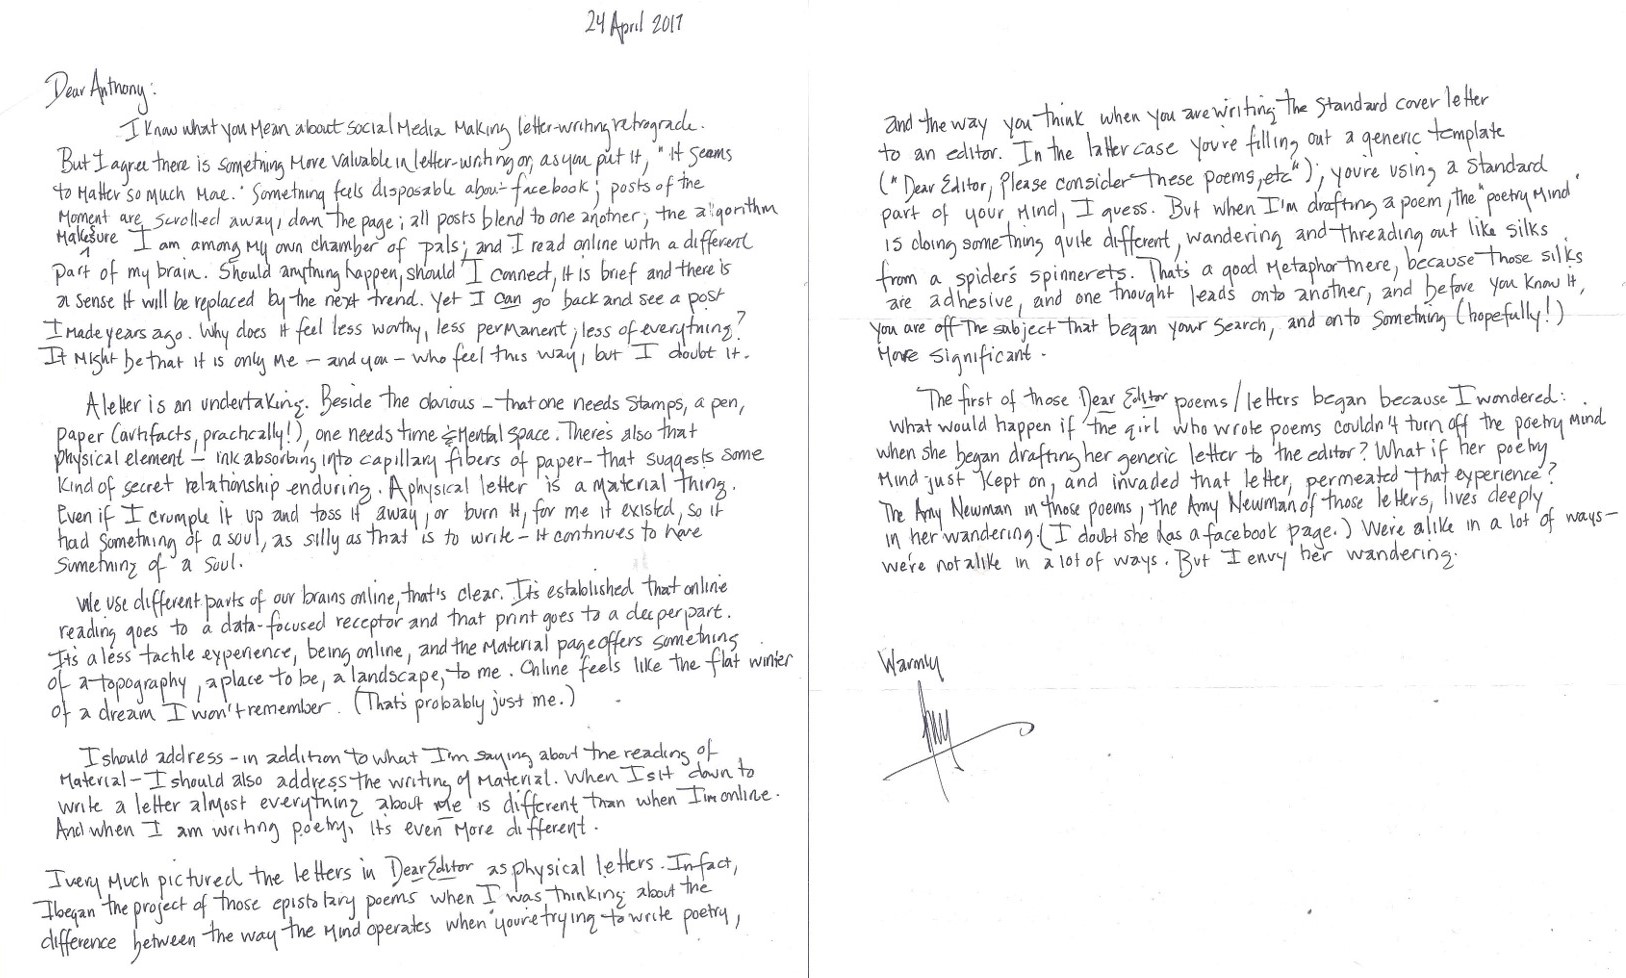 24 April 2017
Dear Anthony:
I know what you mean about social media making letter-writing retrograde.
But I agree there is something more valuable in letter-writing or, as you put it, "it seems
to matter so much more." Something feels disposable about facebook; posts of the
moment are scrolled away, down the page; all posts blend to one another; the algorithm
makes sure I am among my own chamber of pals; and I read online with a different
part of my brain. Should anything happen, should I connect, it is brief and there is
a sense it will be replaced by the next trend. Yet I can go back and see a post
I made years ago. Why does it feel less worthy, less permanent, less of everything?
It might be that it is only me – and you – who feel this way, but I doubt it.
A letter is an undertaking. Beside the obvious – that one needs stamps, a pen,
paper (artifacts, practically!), one needs time & mental space. There's also that
physical element – ink absorbing into capillary fibers of paper – that suggests some
kind of secret relationship enduring. A physical letter is a material thing.
Even if I crumple it up and toss it away, or burn it, for me it existed, so it
had something of a soul, as silly as that is to write – it continues to have
something of a soul.
We use different parts of our brains online, that's clear. It's established that online
reading goes to a data-focused receptor and that print goes to a deeper part.
It's a less tactile experience, being online, and the material page offers something
of a topography, a place to be, a landscape, to me. Online feels like the flat winter
of a dream I won't remember. (That's probably just me.)
I should address – in addition to what I'm saying about the reading of
material – I should also address the writing of material. When I sit down to
write a letter almost everything about me is different than when I'm online.
And when I am writing poetry, it's even more different.
I very much pictured the letters in Dear Editor as physical letters. In fact,
I began the project of those epistolary poems when I was thinking about the
difference between the way the mind operates when you're trying to write poetry,
and the way you think when you are writing the standard cover letter
to an editor. In the latter case you're filling out a generic template
("Dear Editor, Please consider these poems, etc"); you're using a standard
part of your mind, I guess. But when I'm drafting a poem, the "poetry mind"
is doing something quite different, wandering and threading out like silks
from a spider's spinnerets. That's a good metaphor there, because those silks
are adhesive, and one thought leads onto another, and before you know it,
you are off the subject that began your search, and onto something (hopefully!)
more significant.
The first of those Dear Editor poems/letters began because I wondered:
what would happen if the girl who wrote poems couldn't turn off the poetry mind
when she began drafting her generic letter to the editor? What if her poetry
mind just kept on, and invaded that letter, permeated that experience?
The Amy Newman in those poems, the Amy Newman of those letters, lives deeply
in her wandering. (I doubt she has a facebook page.) We're alike in a lot of ways –
we're not alike in a lot of ways. But I envy her wandering.
Warmly
Amy